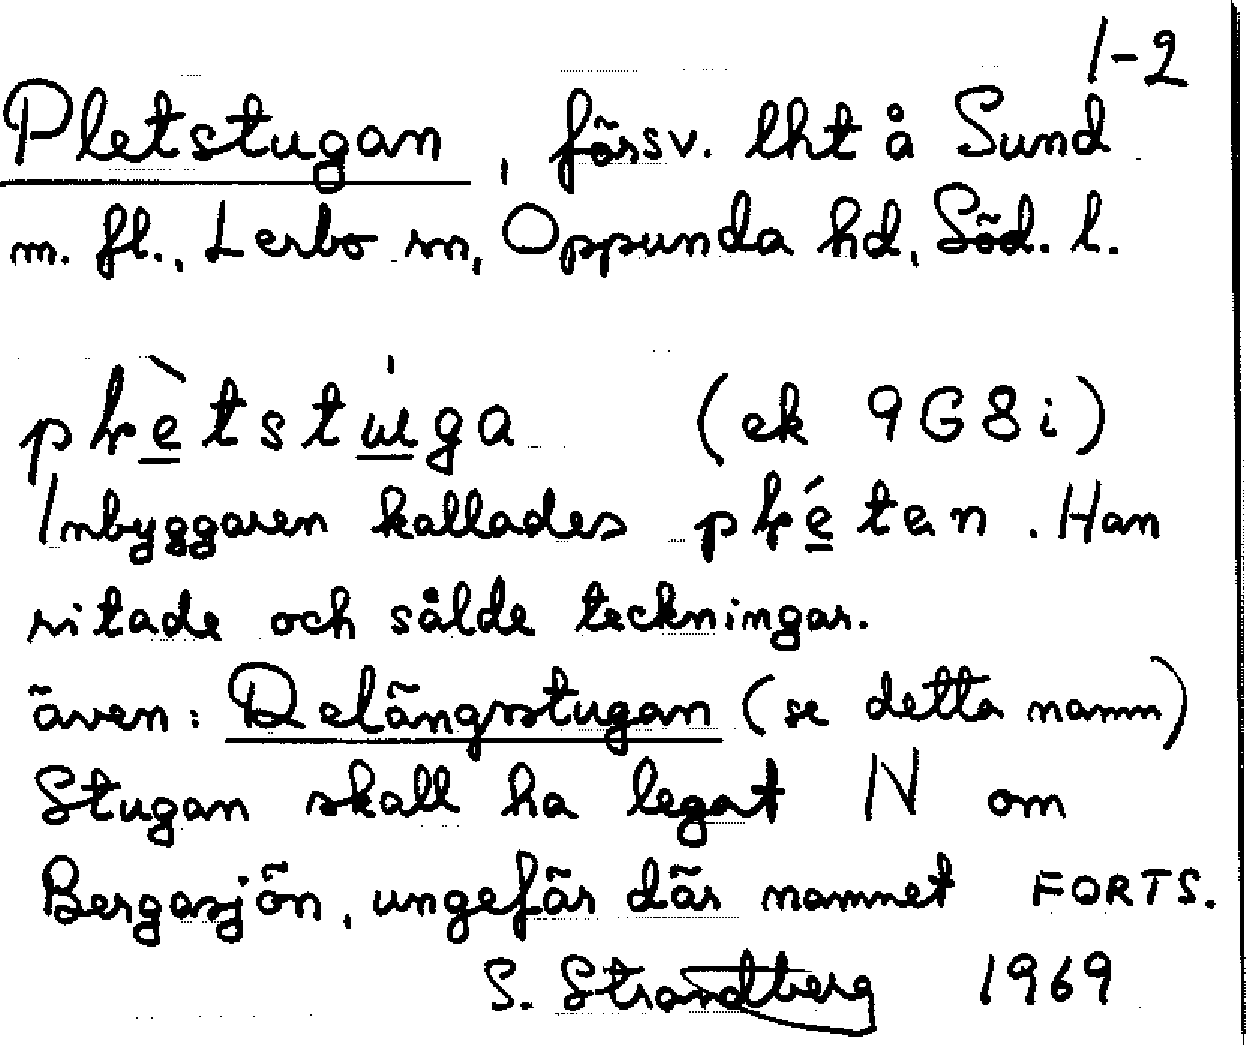 1-2
Pletstugan, försv. lht å Sund
m. fl., Lerbo sn, Oppunda hd, Söd. l.
(ek 9G8i)
Inbyggaren kallades . Han
ritade och sålde teckningar.
även: Delängsstugan (se detta namn)
Stugan skall ha legat N om
Bergasjön, ungefär där namnet FORTS.
S. Strandberg 1969